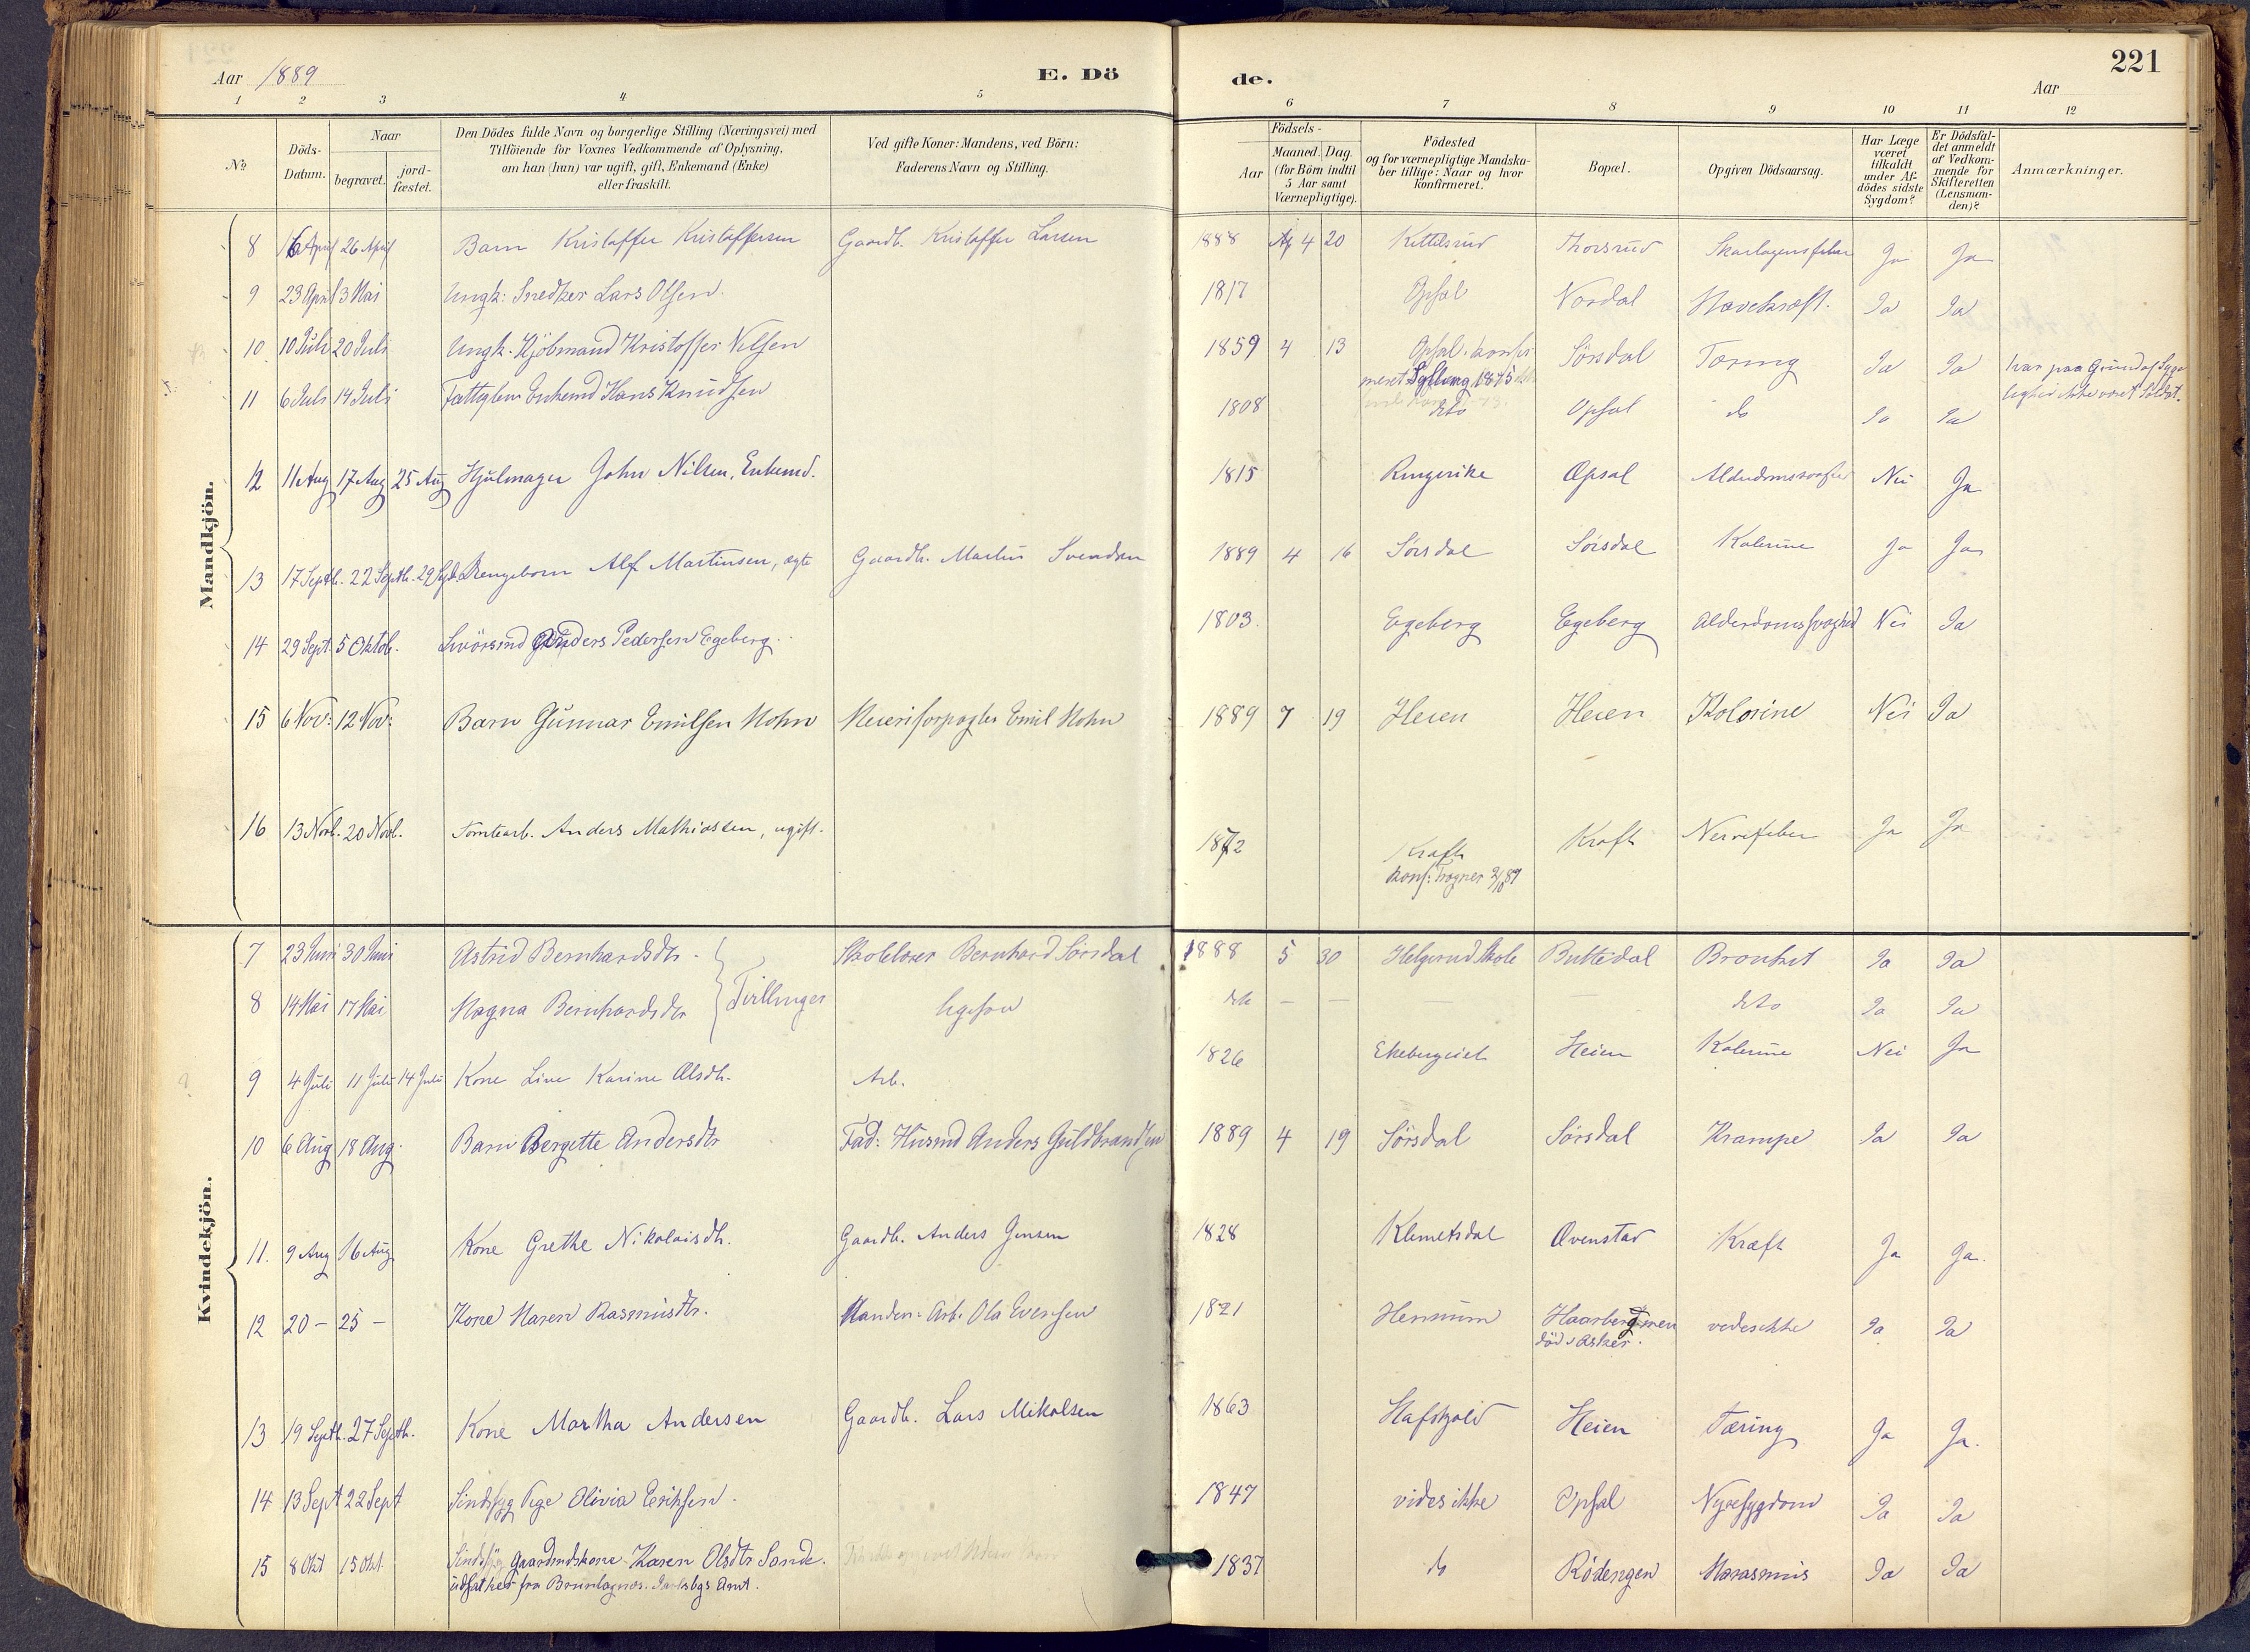 Aar 1889 E. Döde. 221
Aar
1 2 3 4 5 6 7 8 9 10 11 12
No
Döds-Datum.
Naar
begravet.
jord-fæstet.
Den Dödes fulde Navn og borgerlige Stilling (Næringsvei) med
Tilföiende for Voxnes Vedkommende af Oplysning,
om han (hun) var ugift, gift, Enkemand (Enke)
eller fraskilt.
Ved gifte Koner: Mandens, ved Börn:
Faderens Navn og Stilling.
Födsels-
Aar
Maaned. Dag.
(for Börn indtil
5 Aar samt
Værnepligtige).
Födested
og for værnepligtige Mandska-
ber tillige: Naar og hvor
konfirmeret.
Bopæl.
Opgiven Dödsaarsag.
Har Læge
været
tilkaldt
under Af-
dödes sidste
Sygdom?
Er Dödsfal-
det anmeldt
af Vedkom-
mende for
Skifteretten
(Lensman-
den)?
Anmærkninger.
Mandkjön.
8 16 April 26 April Barn Kristoffer Kristoffersen Gaardb. Kristoffer Larsen 1888 4 20 Kittilsrud Thorsrud Skarlagensfeber Ja Ja
9 23 April 3 Mai Ungk: Snedker Lars Olsen. 1817 Opsal Nordal Mavekræft. Ja Ja
10 10 Juli 20 Juli Ungk. Kjöbmand Kristoffer Nilsen 1859 4 13 Opsal. konfir Sörsdal Tæring Ja Ja var paa Grund af Syge
meret Sylling 1875 lighed ikke været Soldat.
11 6 Juli 14 Juli Fattiglem Enkemd Hans Knudsen 1808 dto Opsal do Ja Ja
12 11 Aug 17 Aug 25 Aug Hjulmager John Nilsen, Enkemd. 1815 Ringerike Opsal Alderdomssvaghed Nei Ja
13 17 Septb. 22 Septb. 29 Septb. Drengebarn Alf Martinsen, ægte Gaardb. Martin Svendsen 1889 4 16 Sörsdal Sörsdal Kolerine Ja Ja
14 29 Sept. 5 Oktob. Anders Pedersen Egeberg. 1803. Egeberg Egeberg Alderdomssvaghed Nei Ja
15 6 Nov: 12 Nov: Barn Gunnar Emilsen Mohn Meieriforpagter Emil Mohn 1889 7 19 Heien Heien Kolerine Nei Ja
16 13 Novb. 20 Novb. Tomtearb. Anders Mathiassen, ugift. 1872 Kraft Kraft Nervefeber Ja Ja
Konf: Tragner
Kvindekjön.
7 23 Juni 30 Juni Astrid Bernhardsdtr. Tvillinger Skolelærer Bernhard Sörsdal 1888 5 30 Helgerud Skole Buttedal Bronkit Ja Ja
8 14 Mai 17 Mai Magna Bernhardsdtr ligesaa dto — — — dto Ja Ja
9 4 Juli 11 Juli 14 Juli Kone Line Karine Olsdtr. Arb. 1826 Ekebergeiet Heien Kolerine Nei Ja
10 6 Aug 18 Aug. Barn Bergette Andersdtr Fad: Husmd Anders Guldbrandsen 1889 4 19 Sörsdal Sörsdal Krampe Ja Ja
11. 9 Aug 16 Aug Kone Grethe Nikolaisdtr. Gaardb. Anders Jensen 1828 Klemetsdal Ovenstad Kræft Ja Ja.
12 20 — 25 — Kone Maren Rasmusdtr. Manden: Arb. Ola Evensen 1821 Hennum Haarberg men vides ikke Ja Ja
död i Asker.
13 19 Septb. 27 Septb. Kone Martha Andersen Gaardb. Lars Mikalsen 1863 Hafskjold Heien Tæring Ja Ja.
14 13 Sept 22 Sept Sindssyg Pige Olivia Eriksen. 1847 vides ikke Opsal Nyresygdom Ja Ja
15 8 Okt 15 Okt Sindssyg Gaardmdskone Karen Olsdtr Sande. 1837 do Rödengen Marasmus Ja Ja
udsat her fra Brunlagnæs. Jarlsbgs Amt.